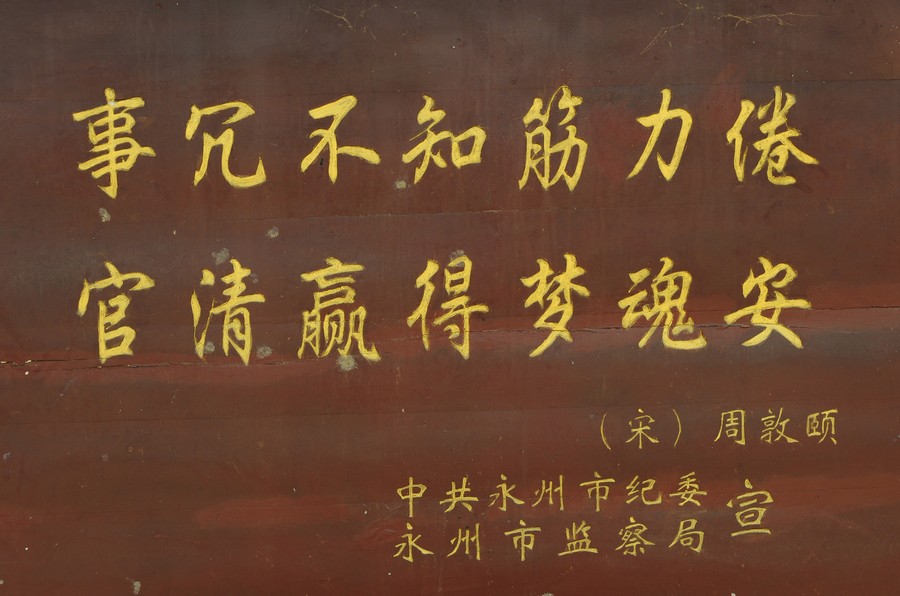 事冗不知筋力倦
官清赢得梦魂安
（宋）周敦颐
中共永州市纪委
永州市监察局 宣